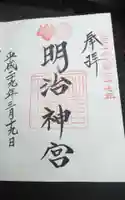 奉拝
明治神宮
平成二十九年三月十九日